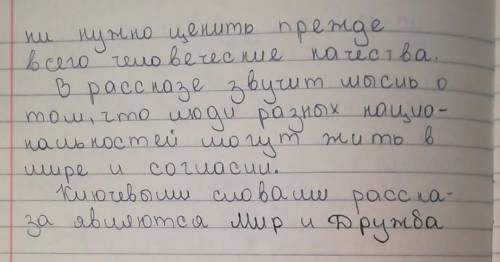 ни нужно ценить прежде
всего человеческие качества.
В рассказе звучит мысль о
том, что люди разных нацио-
нальностей могут жить в
мире и согласии.
Ключевыми словами расска-
за являются Мир и Дружба